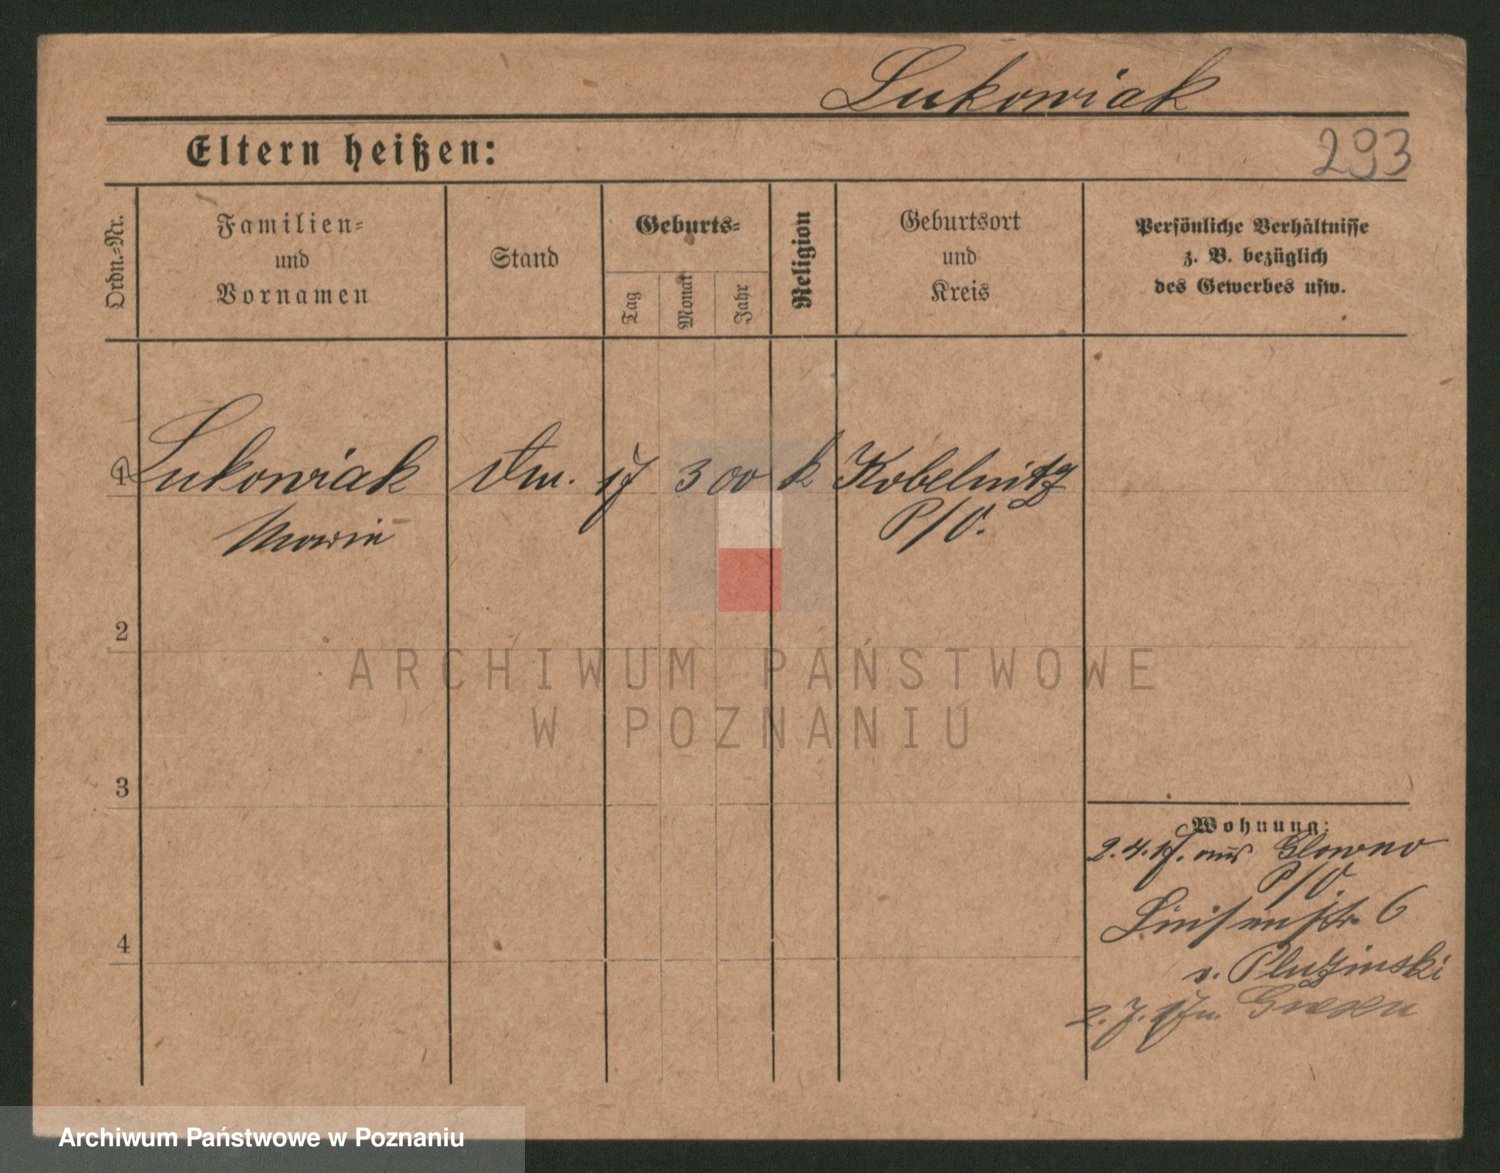 Lukowiak
293
Eltern heißen:
Ordn.-Nr.
Familien-
und
Vornamen
Stand
Geburts-
Tag
Monat
Jahr
Religion
Geburtsort
und
Kreis
Persönliche Verhältnisse
z. B. bezüglich
des Gewerbes usw.
1 Lukowiak 17 3 00 k Kobelnitz
Marie P/O.
2
ARCHIWUM PAŃSTWOWE
W POZNANIU
3
Wohnung:
2.4.17. aus Glowno
P/O.
Luisenstr. 6
v. Pluzinski
4
Archiwum Państwowe w Poznaniu